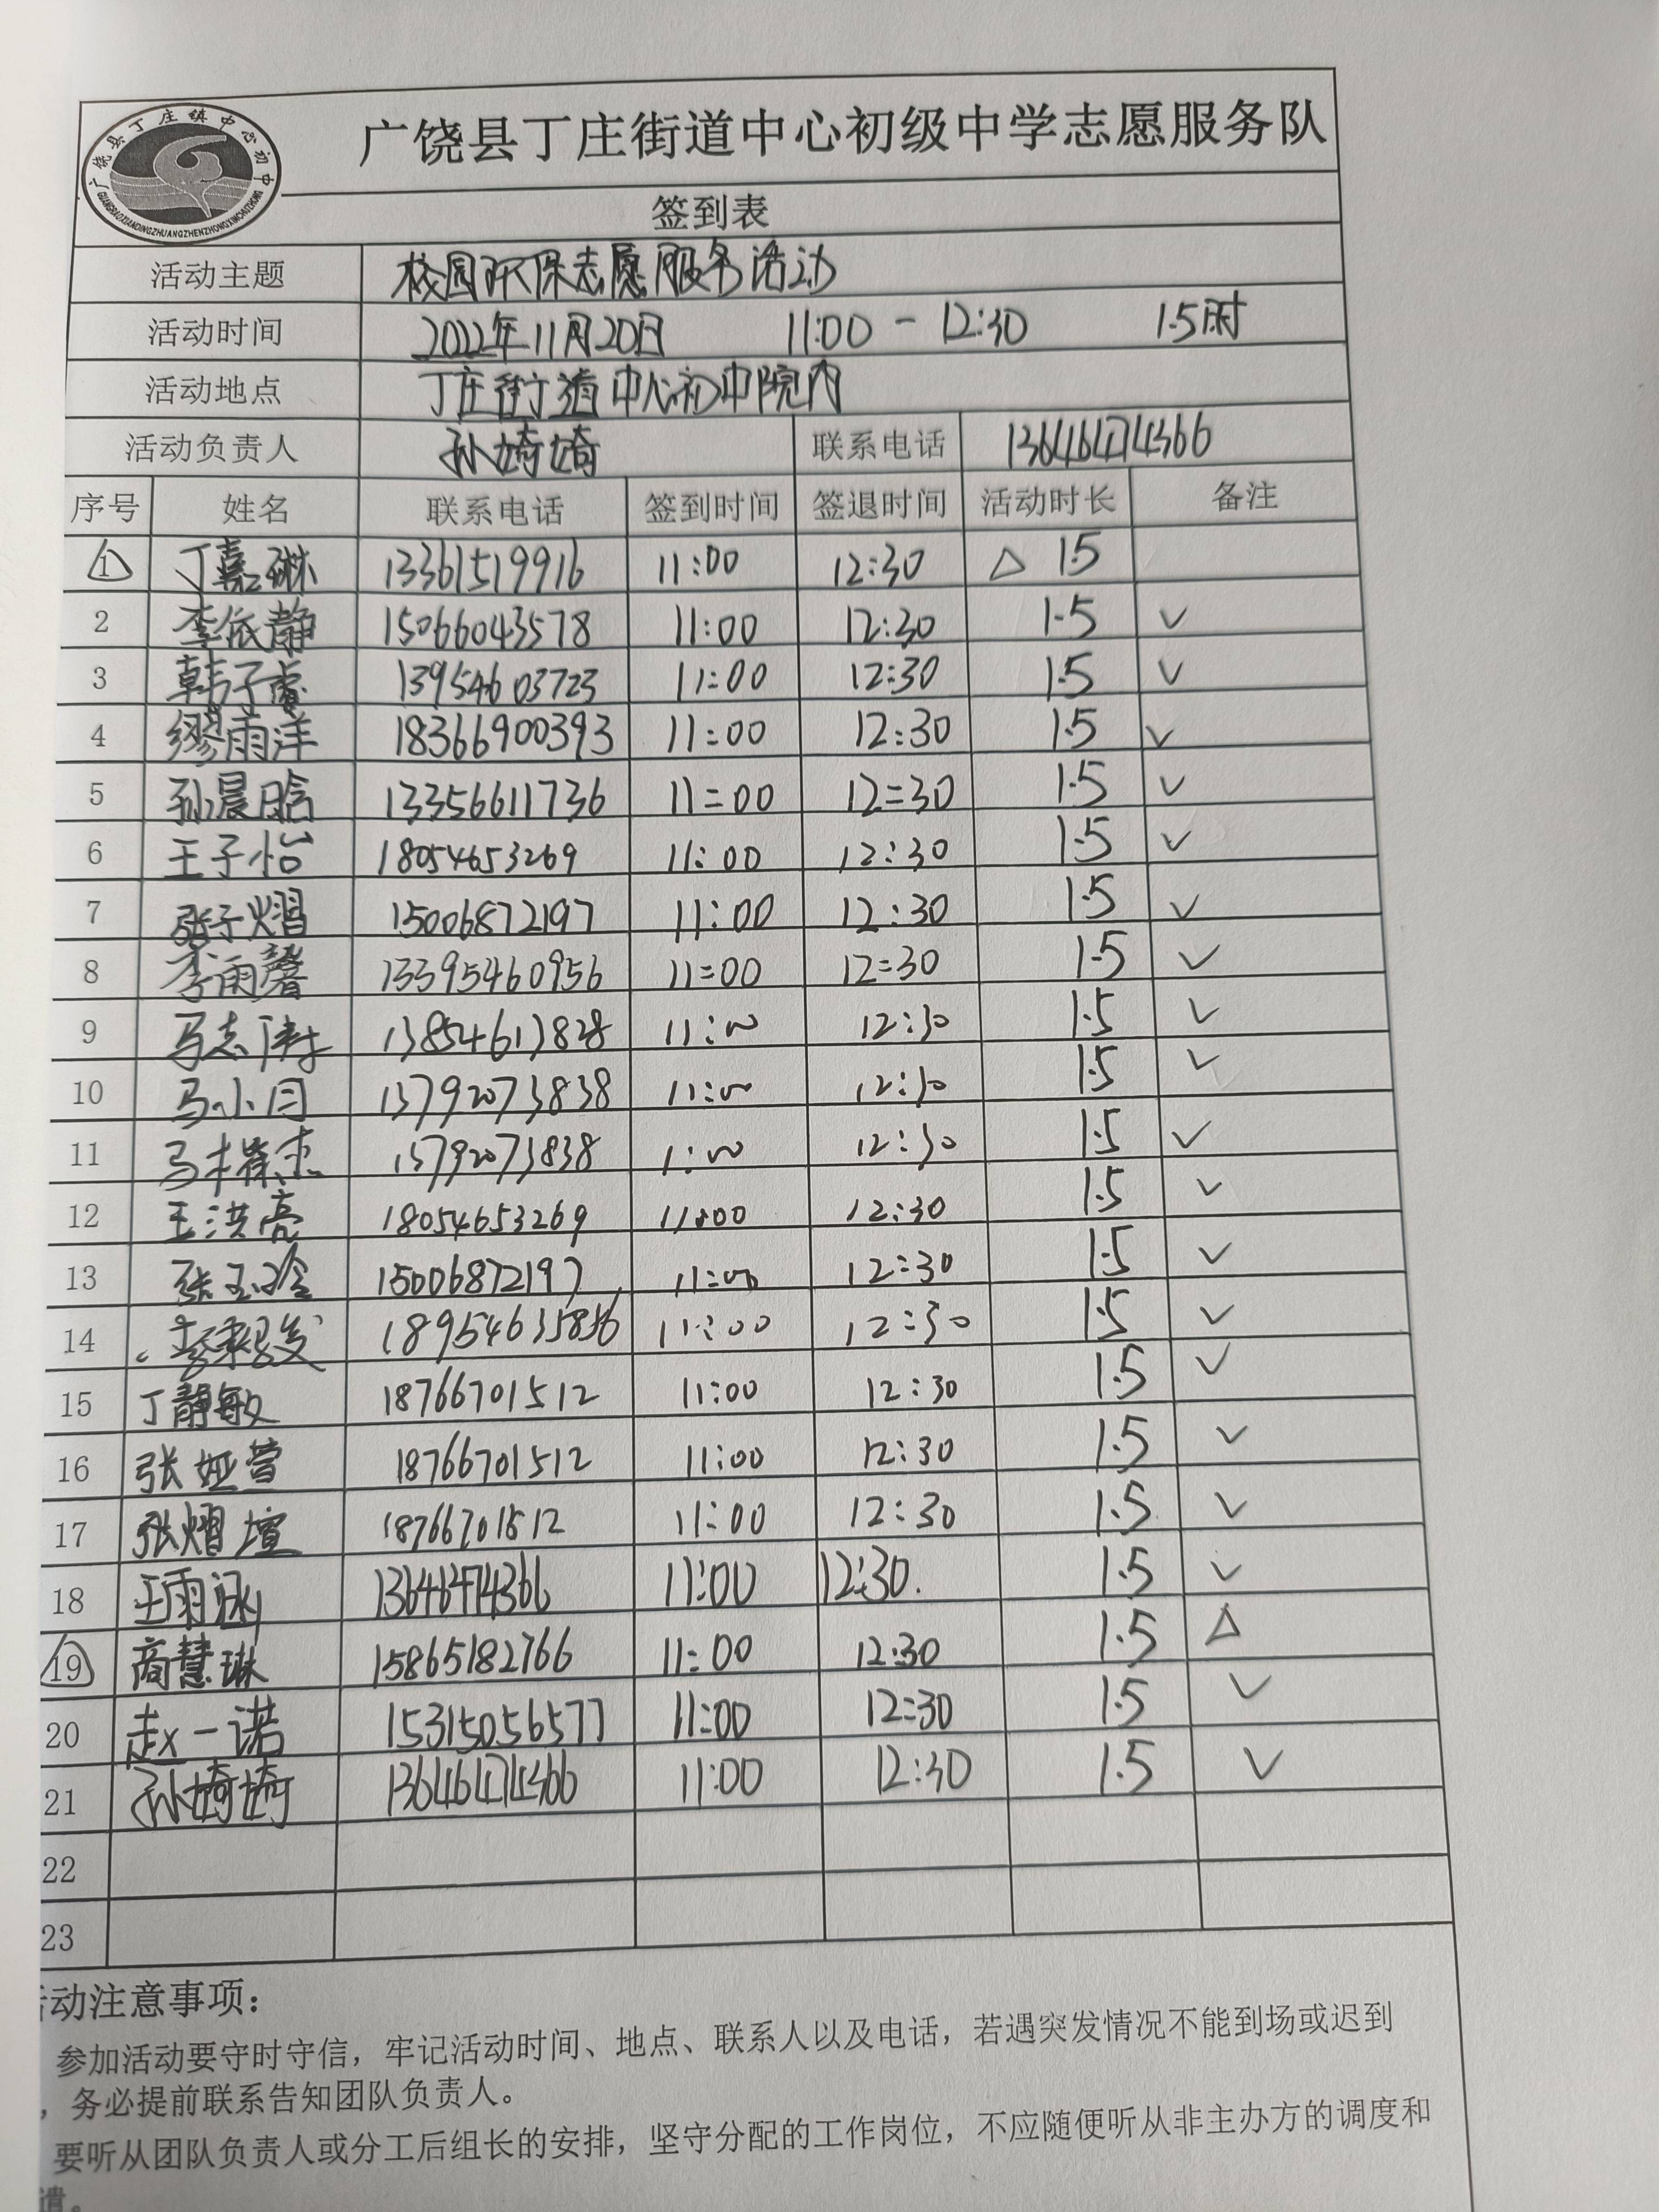 广饶县丁庄镇中心初中
GUANGRAOXIANDINGZHUANGZHENZHONGXINCHUZHONG
广饶县丁庄街道中心初级中学志愿服务队
签到表
活动主题 校园环保志愿服务活动
活动时间 2022年11月20日 11:00-12:30 1.5时
活动地点 丁庄街道中心初中院内
活动负责人 孙婍婍 联系电话 13646474366
序号 姓名 联系电话 签到时间 签退时间 活动时长 备注
1 丁嘉琳 13361519916 11:00 12:30 △ 1.5
2 李依静 15066043578 11:00 12:30 1.5 ✓
3 韩子睿 13954603723 11:00 12:30 1.5 ✓
4 缪雨洋 18366900393 11:00 12:30 1.5 ✓
5 孙晨晗 13356611736 11:00 12:30 1.5 ✓
6 王子怡 18054653269 11:00 12:30 1.5 ✓
7 张子熠 15006872197 11:00 12:30 1.5 ✓
8 李雨馨 13395460956 11:00 12:30 1.5 ✓
9 马志 13854613828 11:00 12:30 1.5 ✓
10 马小月 13792073838 11:00 12:30 1.5 ✓
11 马 13792073838 11:00 12:30 1.5 ✓
12 王洪亮 18054653269 11:00 12:30 1.5 ✓
13 张玉玲 15006872197 11:00 12:30 1.5 ✓
14 李 11:00 12:30 1.5 ✓
15 丁静敏 18766701512 11:00 12:30 1.5 ✓
16 张娅萱 18766701512 11:00 12:30 1.5 ✓
17 张熠煊 18766701512 11:00 12:30 1.5 ✓
18 王雨涵 13646474366 11:00 12:30. 1.5 ✓
19 商慧琳 15865182766 11:00 12:30 1.5 △
20 赵一诺 15315056577 11:00 12:30 1.5 ✓
21 孙婍婍 13646474366 11:00 12:30 1.5 ✓
22
23
活动注意事项：
参加活动要守时守信，牢记活动时间、地点、联系人以及电话，若遇突发情况不能到场或迟到
，务必提前联系告知团队负责人。
要听从团队负责人或分工后组长的安排，坚守分配的工作岗位，不应随便听从非主办方的调度和
遣。